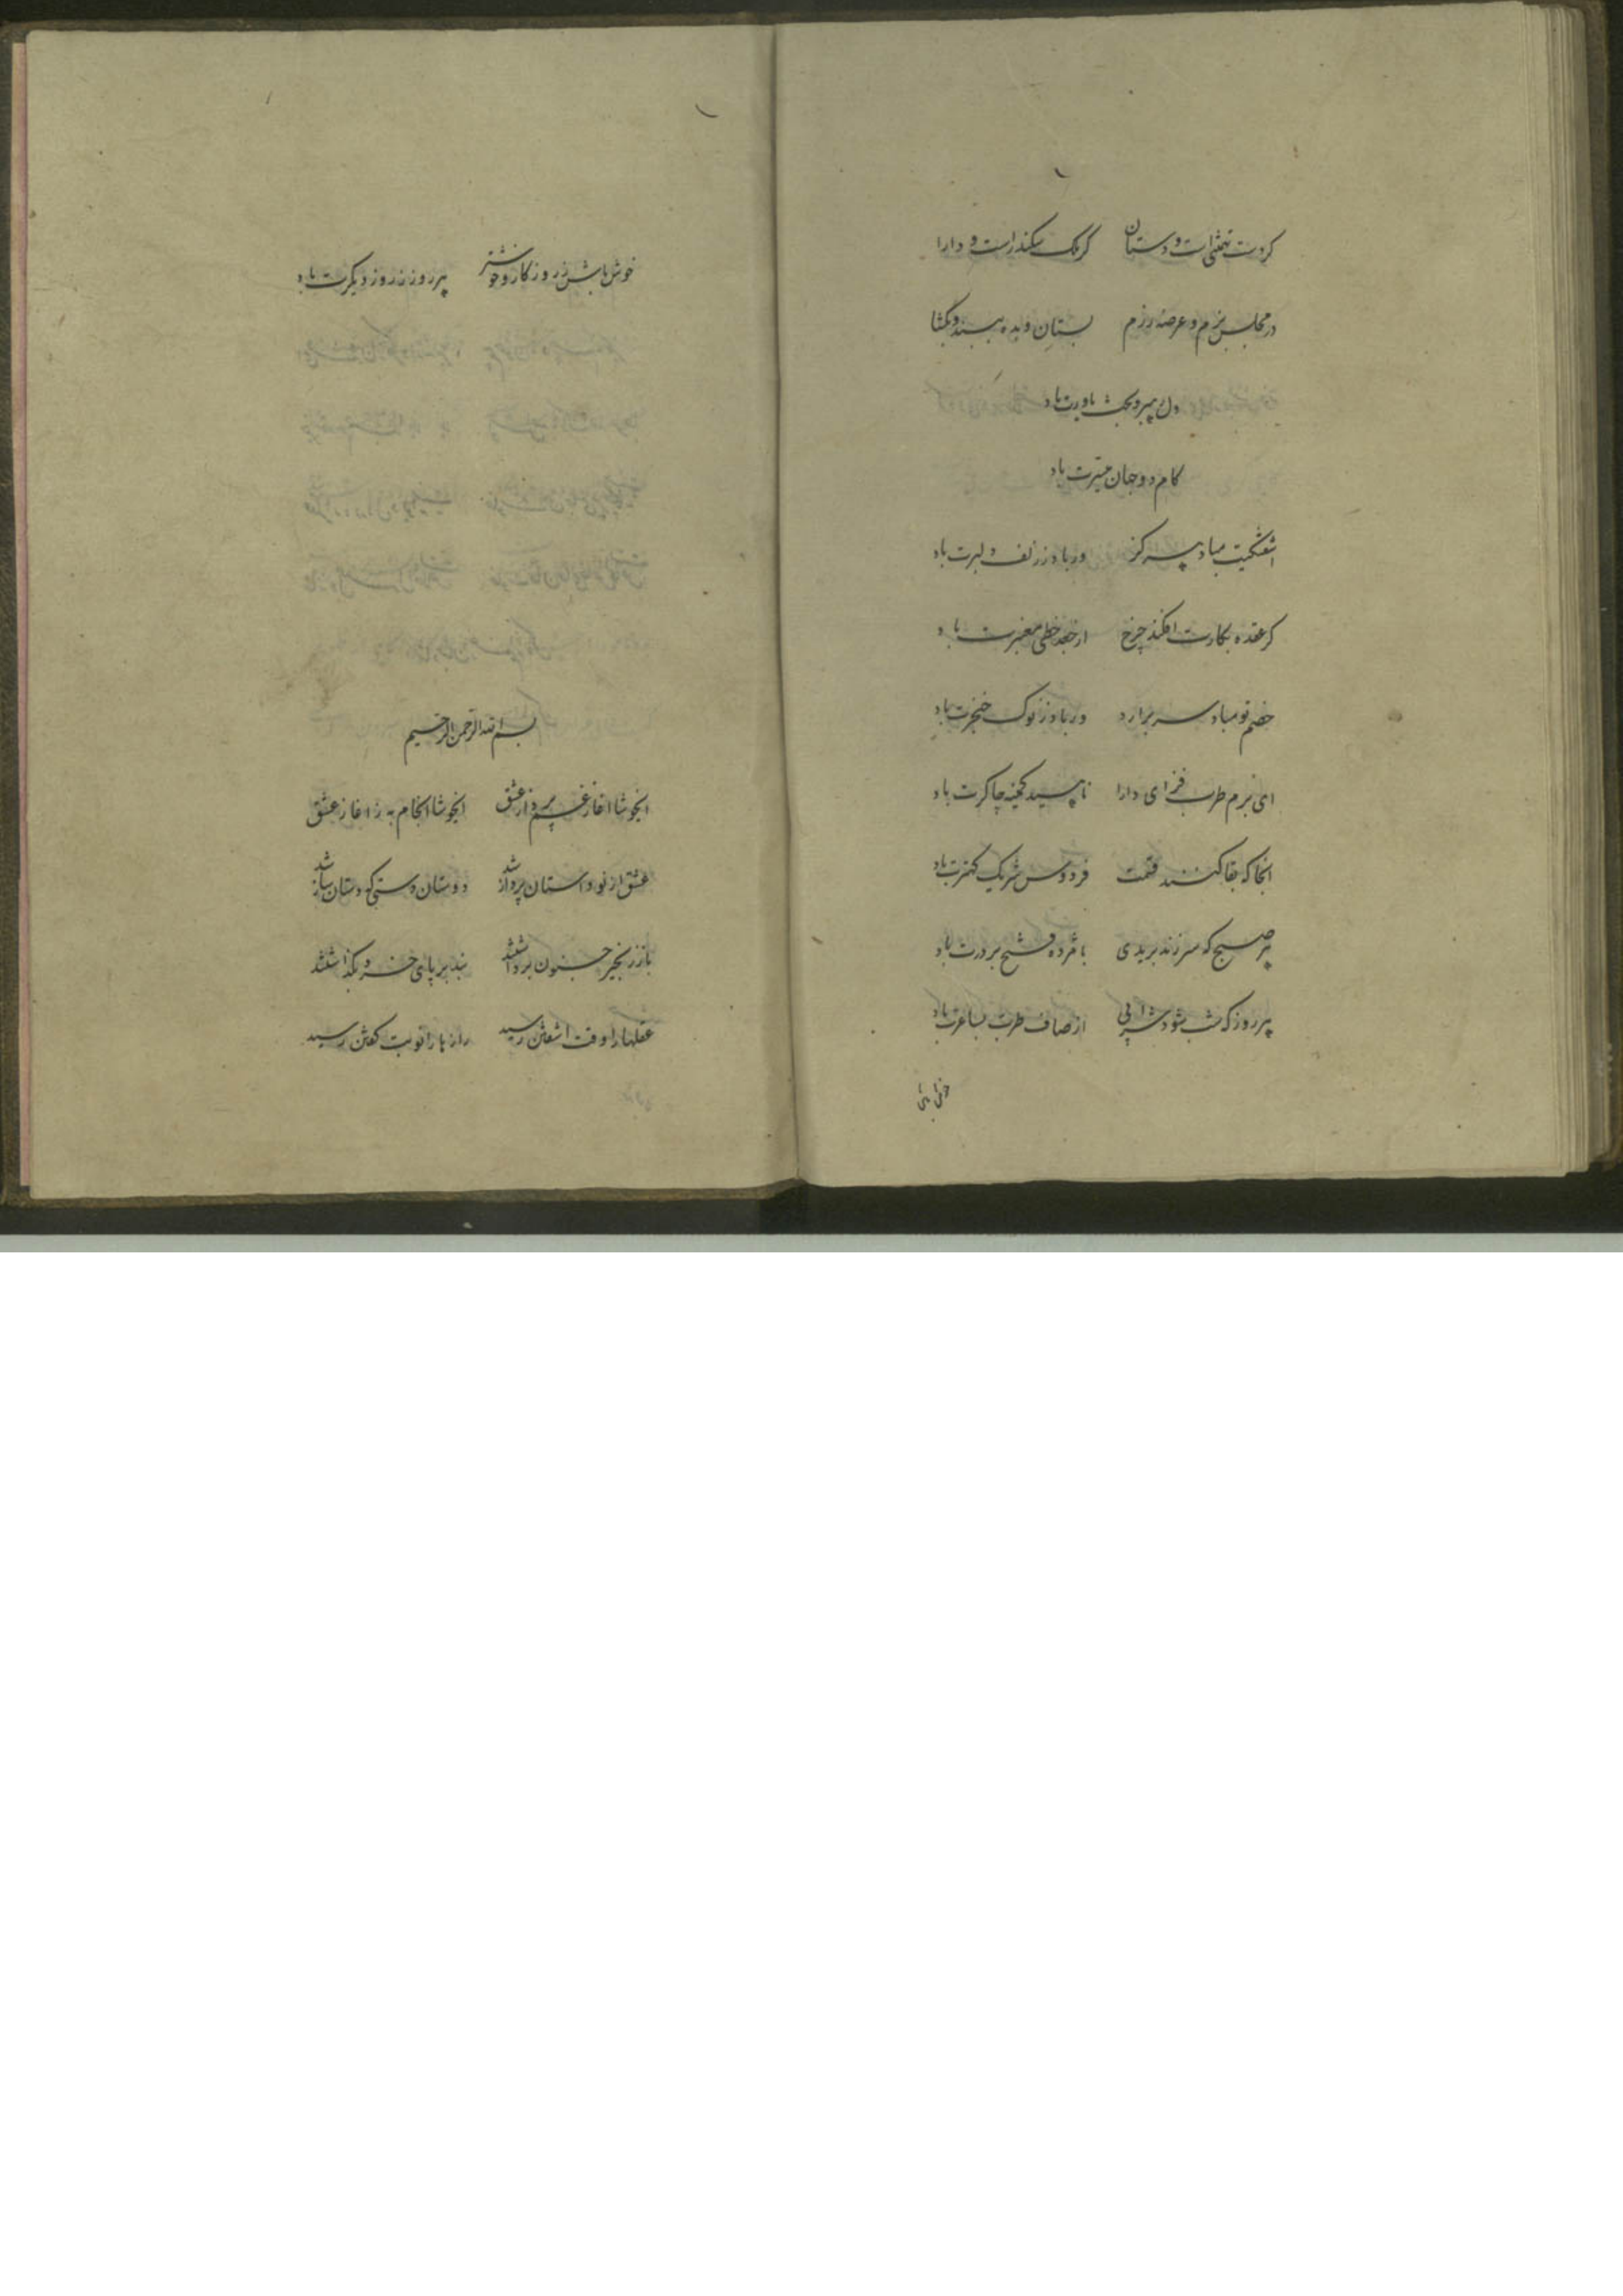 گر دست تهمتن است و دستان گر ملک سکندر است و دارا
در مجلس بزم و عرصه رزم بستان و بده ببند و بگشا
دل رهبر و بخت یاورت باد
کام دو جهان میسرت باد
اشفتگیت مباد بر سر کز ور باد ز زلف دلبرت باد
کر عقده بکارت افکند چرخ از جعد خطی معنبرت باد
خصم تو مباد سر برارد ور باد ز نوک خنجرت باد
ای بزم طرب فزای دارا ناهید کمینه چاکرت باد
انجا که بقا کنند قسمت فردوس شریک کمترت باد
هر صبح که سر زند بریدی با مژده فتح بر درت باد
هر روز که شب شود شرابی از صاف طرب بساغرت باد
خوش باش
خوش باش ز روزگار و خوشتر هر روز ز روز دیگرت باد
بسم الله الرحمن الرحیم
ایخوشا اغاز غم پرداز عشق ایخوشا انجام به ز اغاز عشق
عشق از نو داستان پرداز شد دوستان دستی که دستان ساز شد
باز زنجیر جنون برداشتند بند بر پای خرد بگذاشتند
عقلها را وقت اشفتن رسید رازها را نوبت گفتن رسید